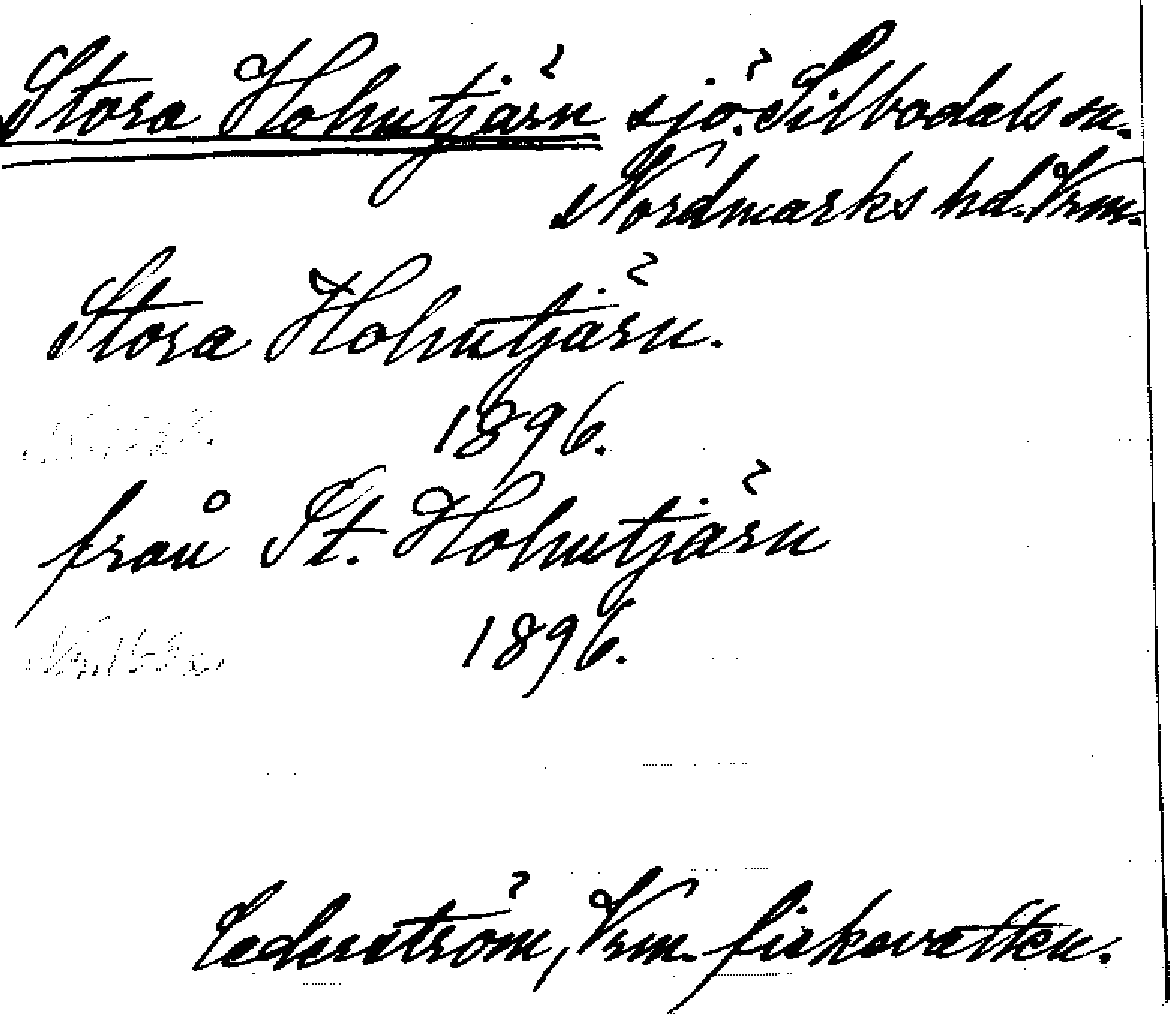 Stora Holmtjärn sjö. Silbodals sn.
Nordmarks hd. Vrm.
Stora Holmtjärn.
1896.
från St. Holmtjärn
1896.
Cederström, Vrm. fiskevatten.